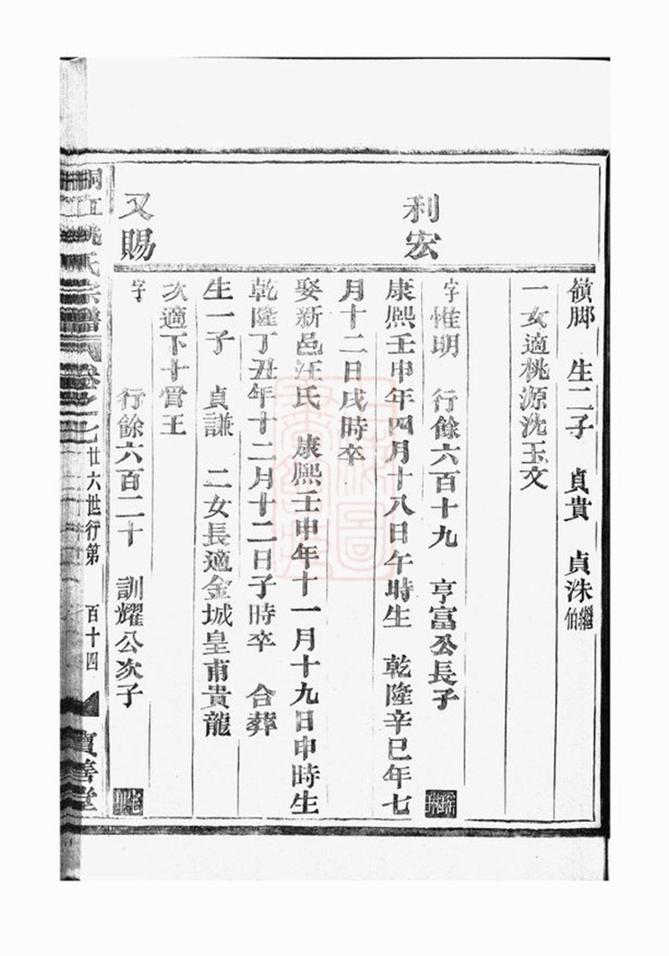 嶺脚　生二子　貞貴　貞洙繼伯
一女適桃源沈玉文
利宏
字惟明　行餘六百十九　亨富公長子
康熙壬申年四月十八日午時生　乾隆辛巳年七
月十二日戌時卒
娶新邑汪氏　康熙壬申年十一月十九日申時生
乾隆丁丑年十二月十二日子時卒　合葬
生一子　貞謙　二女長適金城皇甫貴龍
次適下十管王
又賜
字　行餘六百二十　訓耀公次子
江姚氏宗譜　卷之七　廿六世行第　百十四　寶善堂